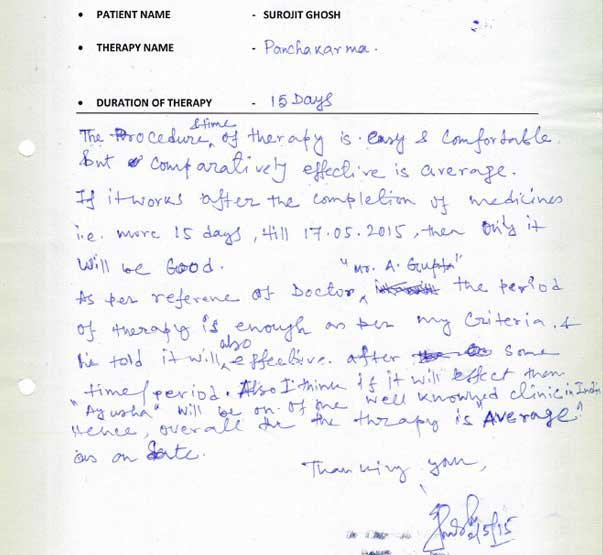 • PATIENT NAME - SUROJIT GHOSH
• THERAPY NAME - Panchakarma.
• DURATION OF THERAPY - 15 Days
& time
The Procedure, of therapy is easy & comfortable.
But comparatively effective is average.
If it works after the completion of medicines
i.e. more 15 days, till 17.05.2015, then only it
will be Good.
"Mr. A. Gupta"
As per referene of Doctor, the period
of therapy is enough as per my criteria. &
also
he told it will effective. after some
time/period. Also I think if it will effect then
"Ayusha" will be on of one well knowned clinic in India
Hence, overall the the thrapy is "Average"
as on date.
Thanking you,
/5/15